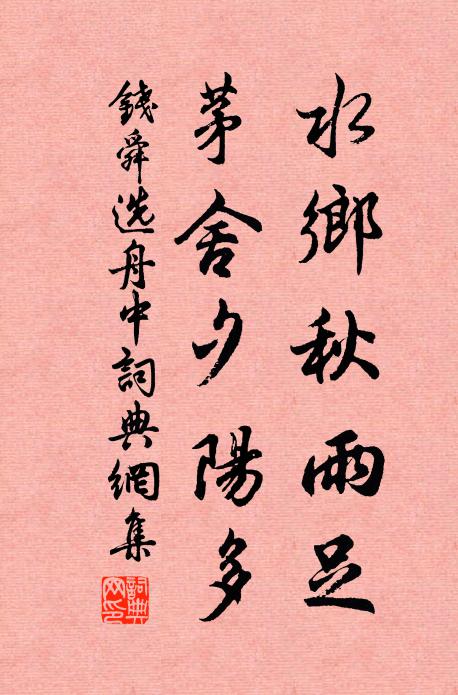 水鄉秋雨足
茅舍夕陽多
錢舜选舟中詞典網集
詞典
网印